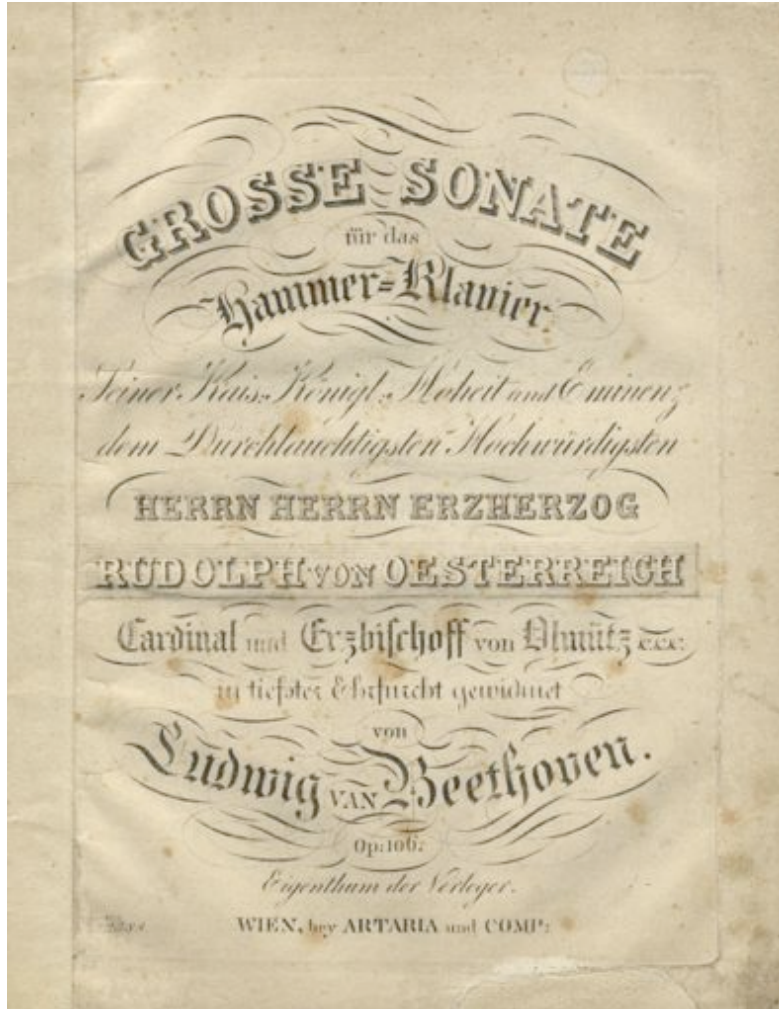 GROSSE SONATE
für das
Hammer=Klavier.
Seiner Kais: Königl: Hoheit und Eminenz
dem Durchlauchtigsten Hochwürdigsten
HERRN HERRN ERZHERZOG
RUDOLPH VON OESTERREICH
Cardinal und Erzbischoff von Olmütz c.c.c.
in tiefster Ehrfurcht gewidmet
von
Ludwig VAN Beethoven.
Op: 106.
Eigenthum der Verleger.
WIEN, bey ARTARIA und COMP: